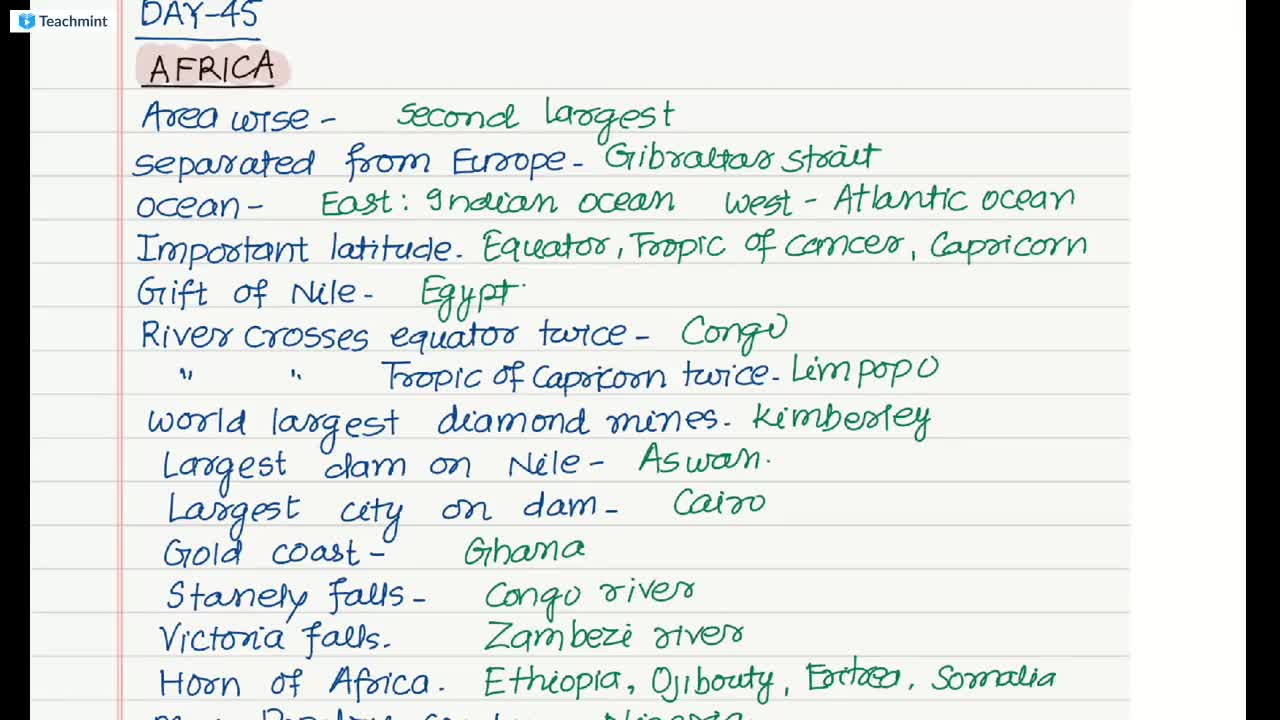 Teachmint
DAY-45
AFRICA
Area wise - second largest
separated from Europe - Gibraltar strait
ocean - East: Indian ocean west - Atlantic ocean
Important latitude. Equator, Tropic of cancer, Capricorn
Gift of Nile - Egypt.
River crosses equator twice - Congo
" " Tropic of Capricorn twice. Limpopo
world largest diamond mines. Kimberley
Largest dam on Nile - Aswan.
Largest city on dam - Cairo
Gold coast - Ghana
Stanely falls - Congo river
Victoria falls. Zambezi river
Horn of Africa. Ethiopia, Ojibouty, Eritrea, Somalia